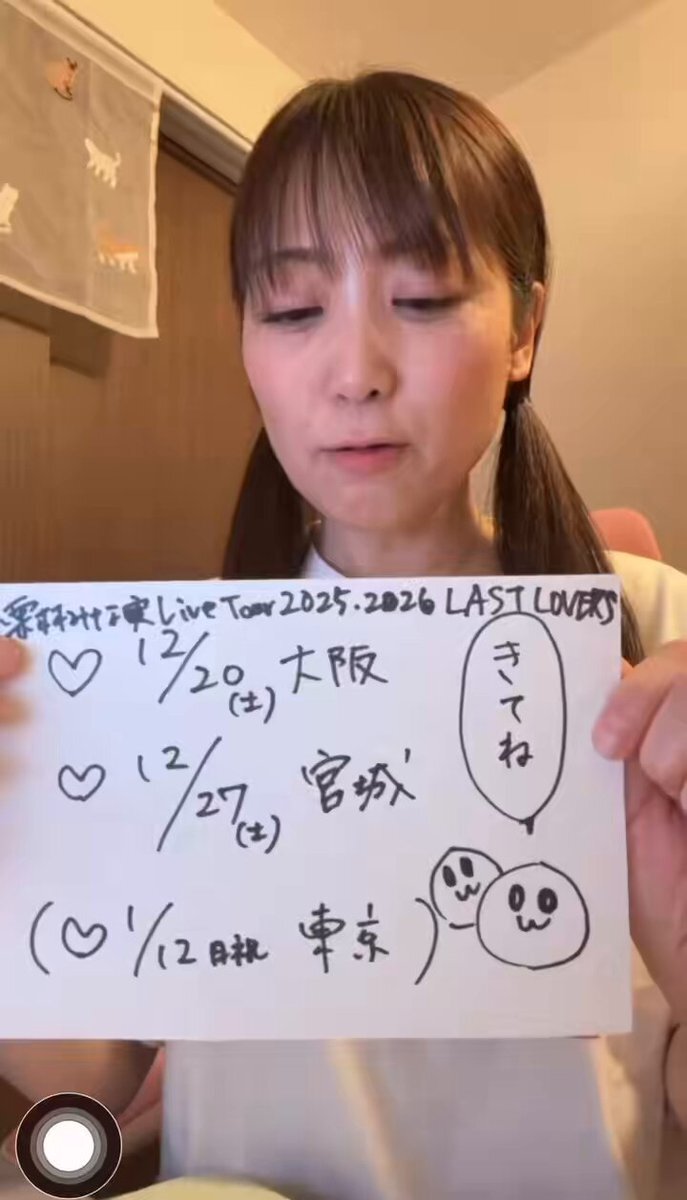 栗林みな実 Live Tour 2025.2026 LAST LOVERS
♡ 12/20(土) 大阪
♡ 12/27(土) 宮城
(♡ 1/12 月祝 東京)
きてね